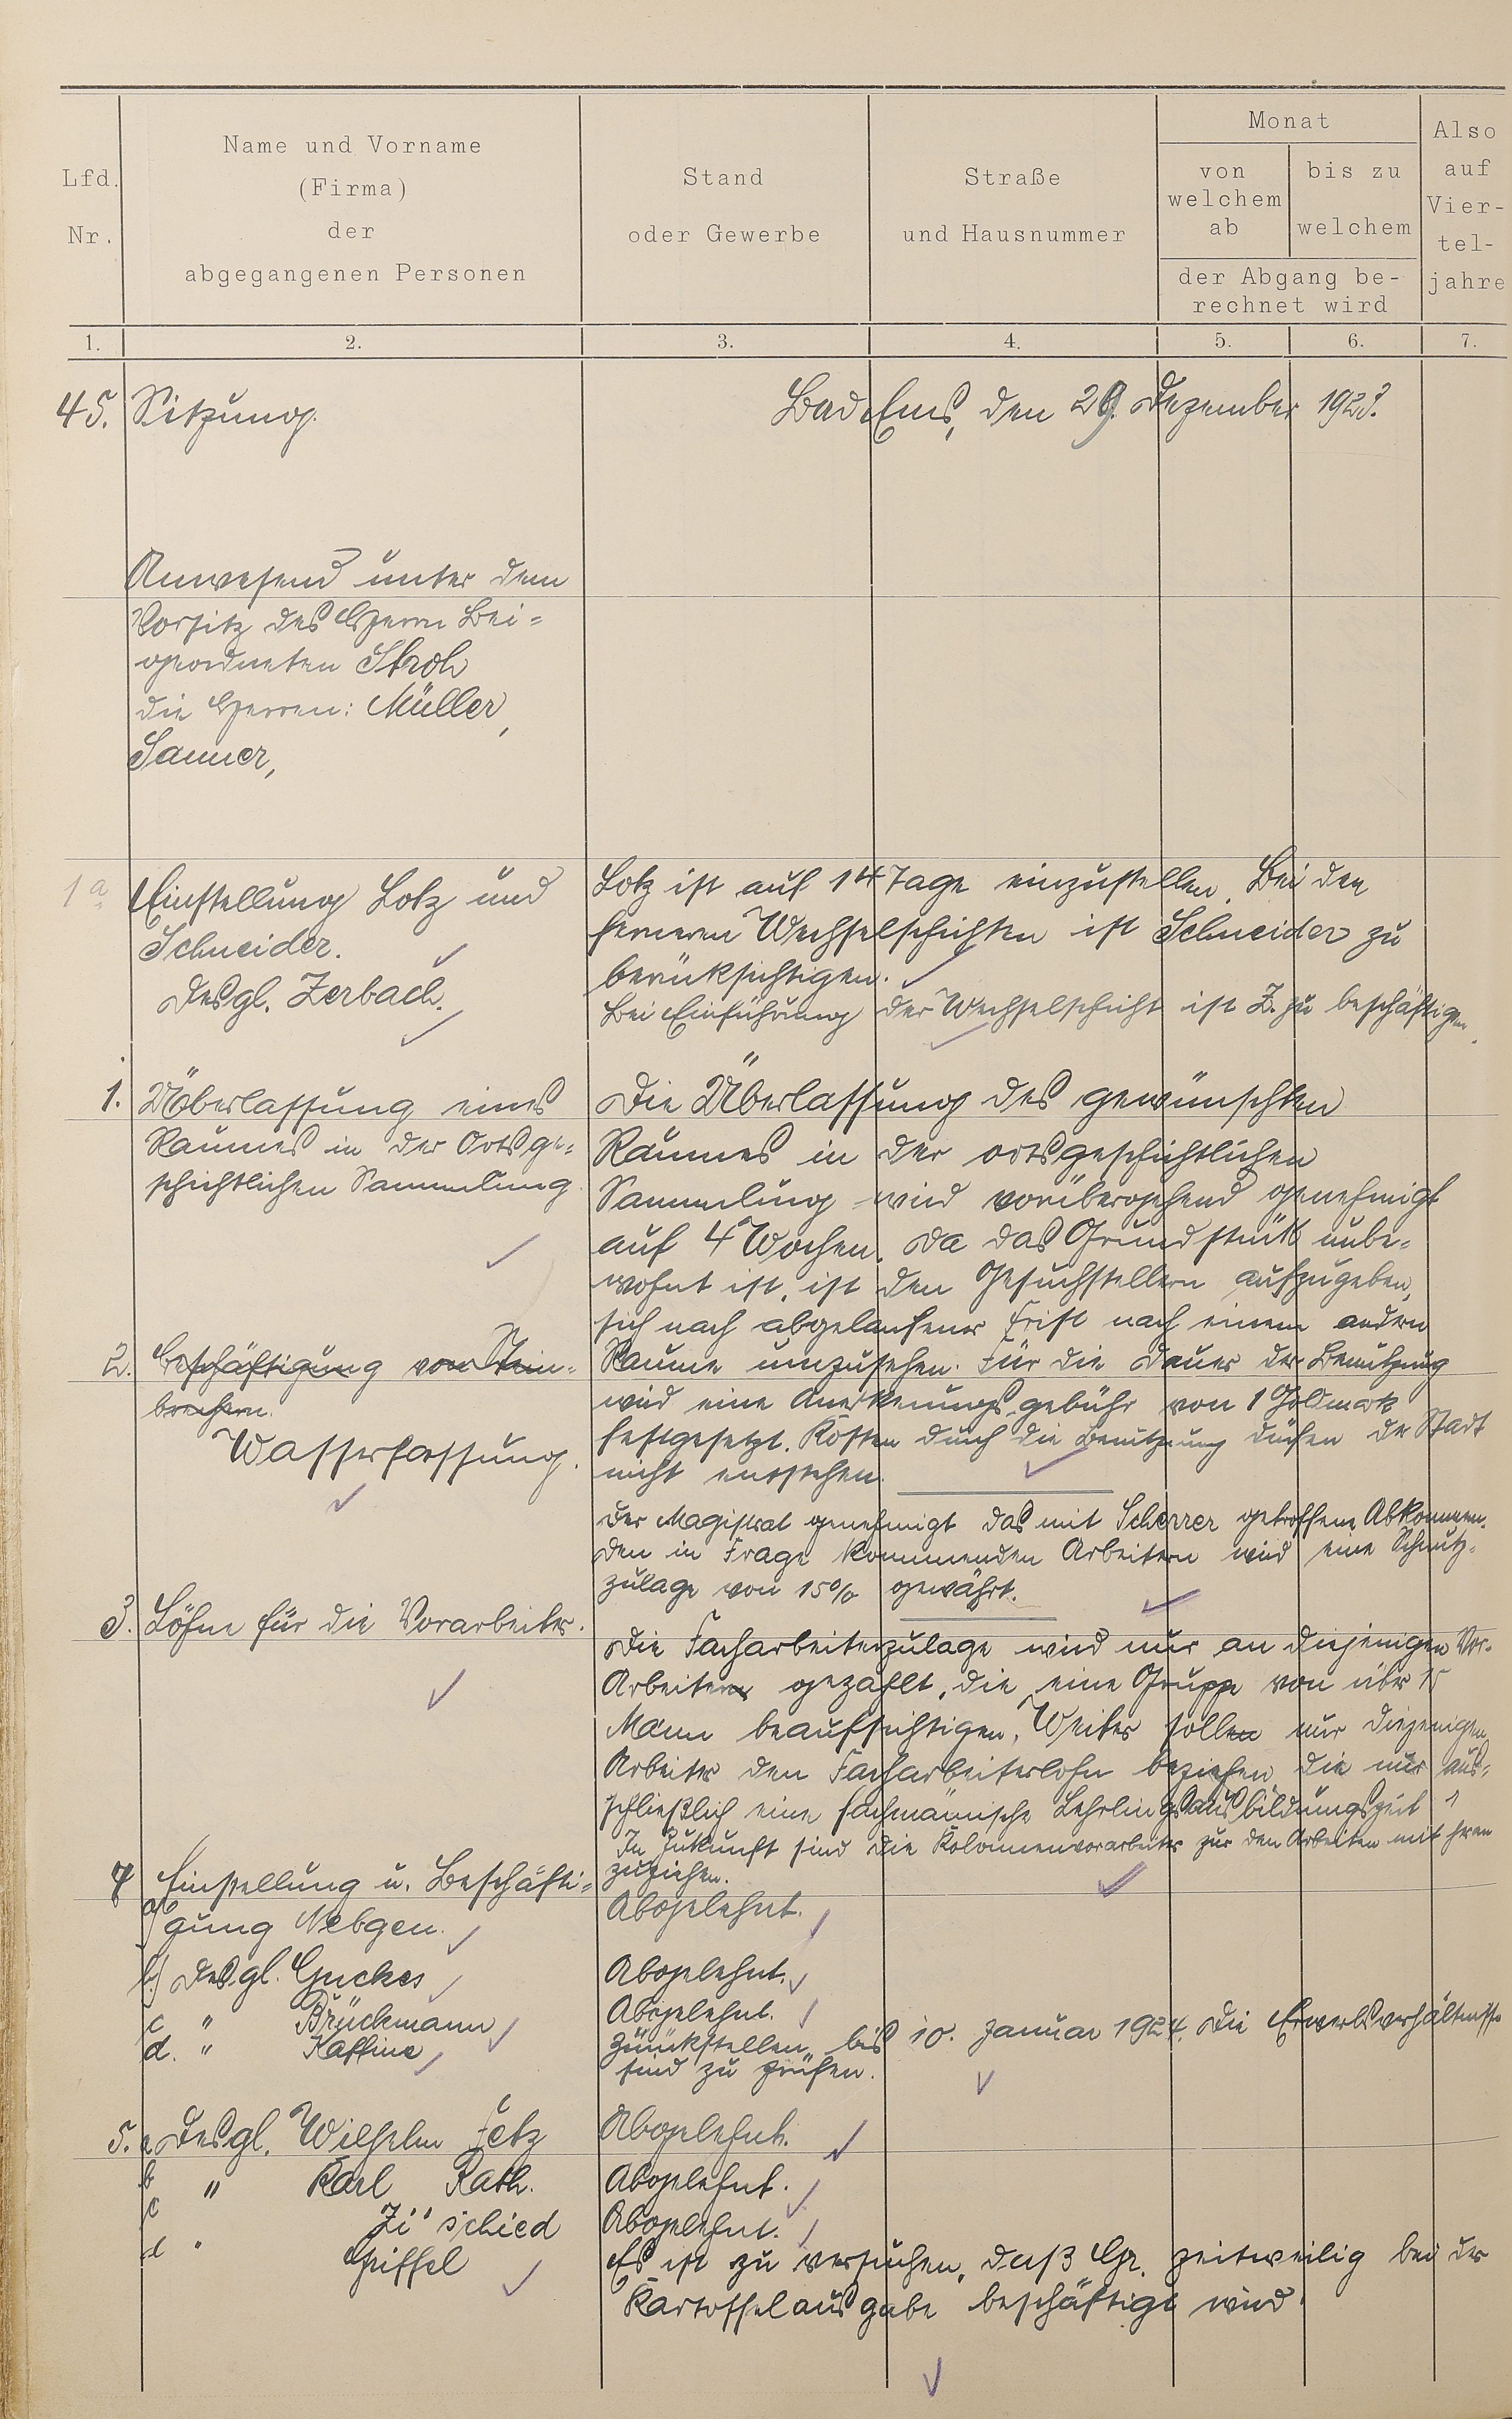 Lfd. Nr.
Name und Vorname
(Firma)
der
abgegangenen Personen
Stand
oder Gewerbe
Straße
und Hausnummer
Monat
von
welchem
ab
bis zu
welchem
der Abgang be-
rechnet wird
Also
auf
Vier-
tel-
jahre
1. 2. 3. 4. 5. 6. 7.
45. Sitzung. Bad Ems, den 29. Dezember 1923.
Anwesend unter dem
Vorsitz des Herrn Bei=
geordneten Stroh
die Herren: Müller,
Sanner,
1a Einstellung Lotz und
Schneider.
Desgl. Zerbach.
Lotz ist auf 14 Tage einzustellen. Bei den
ferneren Wechselschichten ist Schneider zu
berüksichtigen.
Bei Einführung der Wechselschicht ist Z. zu beschäftigen.
1. Überlassung eines
Raumes in der Ortsge=
schichtlichen Sammlung.
Die Überlassung des gewünschten
Raumes in der ortsgeschichtlichen
Sammlung wird vorübergehend genehmigt
auf 4 Wochen. Da das Grundstük unbe=
wohnt ist, ist den Gesuchstellern aufzugeben,
sich nach abgelaufener Frist nach einem andern
Raume umzusehen. Für die Dauer der Benutzung
wird eine Anerkenungsgebühr von 1 Goldmark
festgesetzt. Kosten durch die Benutzung dürfen der Stadt
nicht enstehen.
2. Beschäftigung von Stein=
brechern.
Wasserfassung.
Der Magistrat genehmigt das mit Scherrer getroffene Abkommen.
Den in Frage kommenden Arbeitern wird eine Schmutz=
zulage von 15% gewährt.
3. Löhne für die Vorarbeiter.
Die Facharbeiterzulage wird nur an diejenigen Vor-
Arbeiter gezahlt, die eine Gruppe von über 15
Mann beaufsichtigen. Weiter sollen nur diejenigen
Arbeiter den Facharbeiterlohn beziehen die nur aus=
schließlich eine fachmänische Lehrlingsausbildungszeit
In Zukunft sind die Kolonnenvorarbeiter zur den Arbeiten mit heran
zuziehen.
4 Einstellung u. Beschäfti=
a) gung Nebgen.
Abgelehnt.
b) Desgl. Guckes
Abgelehnt.
c " Brückmann
Abgelehnt.
d. " Kaffine
Zurükstellen bis 10. Januar 1924. Die Erwerbsverhältnisse
sind zu prüfen.
5. a Desgl. Wilhelm Fetz
Abgelehnt.
b " Karl Rath.
Abgelehnt.
c Zi schied
Abgelehnt.
d "
Es ist zu versuchen, daß Gr. zeitweilig bei der
Kartoffelausgabe beschäftigt wird.